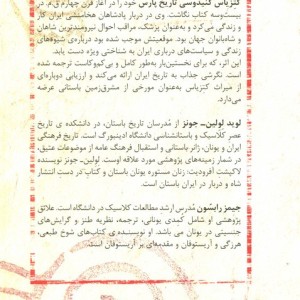 کتزیاس کنیدوسی تاریخ پارس خود را در آغاز قرن چهارم ق.م. در
بیست‌وسه کتاب نگاشت. وی در دربار پادشاهان هخامنشی ایران کار
و زندگی می‌کرد و به‌عنوان پزشک، مراقب احوال نیرومندترین شاهان
و شاه‌بانوان جهان بود. موقعیتش موجب شده بود درباره‌ی شیوه‌های
زندگی و سیاست‌های درباری ایران به شناختی ویژه دست یابد.
این اثر، که برای نخستین‌بار به‌طور کامل و بی‌کم‌وکاست ترجمه شده
است، نگرشی جذاب به تاریخ ایران ارائه می‌کند و ارزیابی دوباره‌ای
از میراث کتزیاس به‌عنوان مورخی از مشرق‌زمین باستانی عرضه
می‌دارد.
لوید لولین‌ـ جونز از مدرسان تاریخ باستان، در دانشکده‌ی تاریخ
عصر کلاسیک و باستانشناسی دانشگاه ادینبورگ است. تاریخ فرهنگی
ایران و یونان، ژانر باستانی و استقبال فرهنگ عامه از موضوعات عتیق،
در شمار زمینه‌های پژوهشی مورد علاقه اوست. لولین‌ـ جونز نویسنده
لاکپشت آفرودیت: زنان مستوره یونان باستان و کتاب در دست انتشار
شاه و دربار در ایران باستان است.
جیمز رابسون مدرس ارشد مطالعات کلاسیک در دانشگاه است. علائق
پژوهشی او شامل کمدی یونانی، ترجمه، نظریه طنز و گرایش‌های
جنسیتی در یونان می باشد. او نویسنده ی کتاب‌های شوخ طبعی،
هرزگی و آریستوفان و مقدمه‌ای بر آریستوفان است.